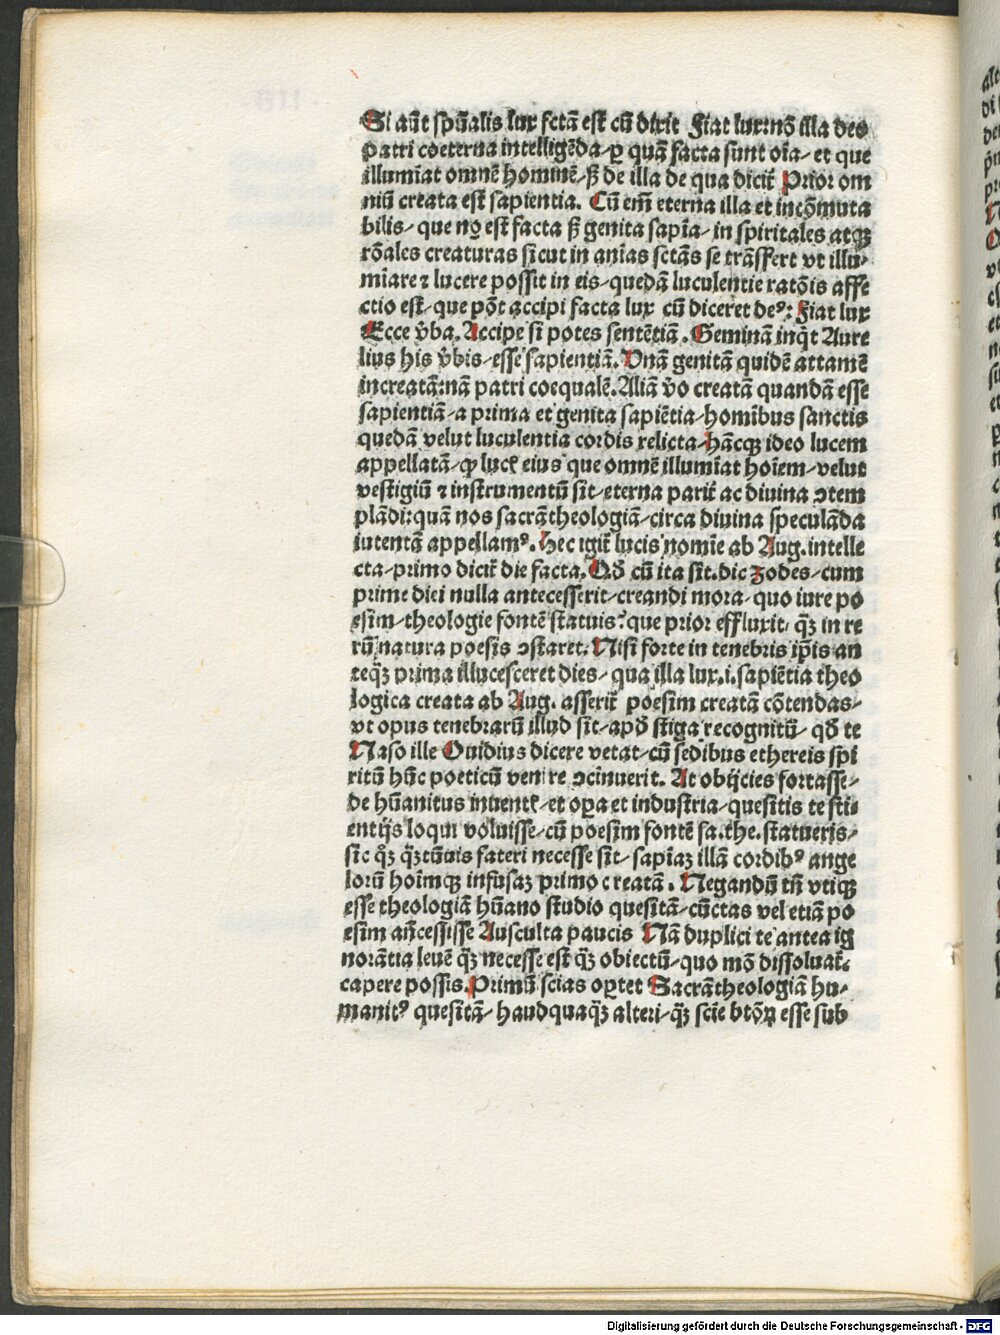 Si aūt spūalis lux fctā est cū dixit Fiat lux: nō illa deo
patri coeterna intelligēda / ꝑ quā facta sunt oīa / et que
illumīat omnē hominē / sꝫ de illa de qua dicit̄ Prior om
niū creata est sapientia. Cū em̄ eterna illa et incōmuta
bilis / que nō est facta sꝫ genita sapīa / in spiritales atqꝫ
rōales creaturas sicut in anīas sctās se trāsfert vt illu⸗
mīare ⁊ lucere possit in eis / quedā luculentie ratōis affe
ctio est / que pōt accipi facta lux cū diceret deꝰ: Fiat lux
Ecce v̄ba. Accipe si potes sentētiā. Geminā inq̄t Aure
lius his v̄bis / esse sapientiā. Vnā genitā quidē attamē
increatā: nā patri coequalē. Aliā v̄o creatā quandā esse
sapientiā / a prima et genita sapiētia / homībus sanctis
quedā velut luculentia cordis relicta / hācqꝫ ideo lucem
appellatā / ꝙ luc̄ eius que omnē illumīat hoīem / velut
vestigiū ⁊ instrumentū sit / eterna parit̄ ac diuina ↄtem
plādi: quā nos sacrātheologiā / circa diuina speculāda
intentā appellamꝰ. Hec igit̄ lucis nomīe ab Aug. intelle
cta / primo dicit̄ die facta. Qd̄ cū ita sit. dic zodes / cum
prime diei nulla antecesserit / creandi mora / quo iure po
esim / theologie fontē statuis? que prior effluxit / qꝫ in re
rū natura poesis ↄstaret. Nisi forte in tenebris ip̄is an
teqꝫ prima illucesceret dies / qua illa lux .i. sapiētia theo
logica creata ab Aug. asserit̄ poesim creatā cōtendas /
vt opus tenebrarū illud sit / apd̄ stiga recognitū / qd̄ te
Naso ille Ouidius dicere vetat / cū sedibus ethereis spi
ritū hūc poeticū venire ↄcinuerit. At obijcies fortasse /
de hūanitus inuent̄ / et oꝑa et industria / quesitis te sci⸗
entijs loqui voluisse / cū poesim fontē sa. the. statueris /
sic qꝫ qꝫtūuis fateri necesse sit / sapīaꝫ illā cordibꝰ ange
lorū hoīmqꝫ infusaꝫ primo creatā. Negandū tn̄ vtiqꝫ
esse theologiā hūano studio quesitā / cūctas vel etiā po
esim an̄cessisse Ausculta paucis Nā duplici te antea ig
norātia leuē qꝫ necesse est qꝫ obiectū / quo mō dissoluat̄.
capere possis. Primū scias oꝑtet Sacrātheologiā hu⸗
manitꝰ quesitā / haudquaqꝫ alteri / qꝫ scīe btōꝝ esse sub

Digitalisierung gefördert durch die Deutsche Forschungsgemeinschaft - DFG